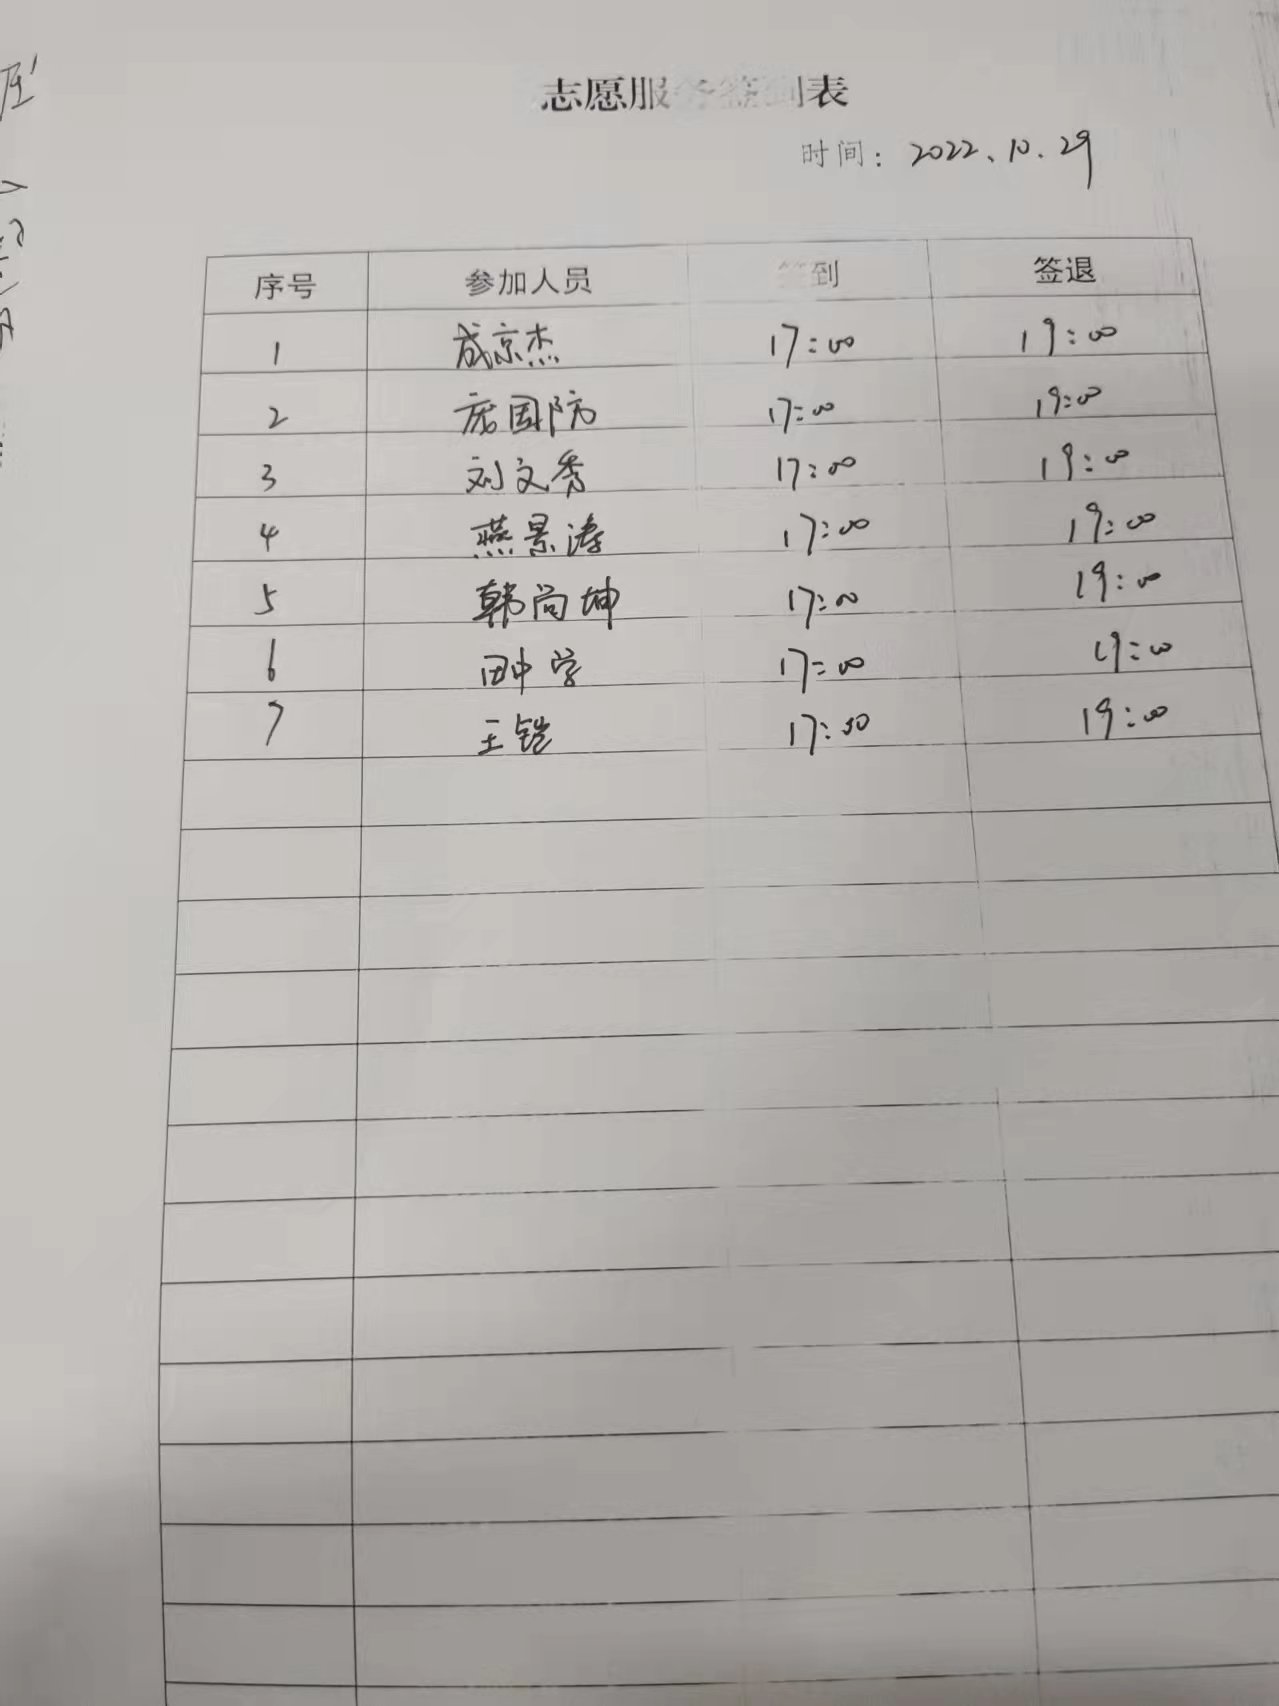 志愿服务签到表
时间: 2022.10.29
序号 参加人员 签到 签退
1 成京杰 17:00 19:00
2 庞国防 17:00 19:00
3 刘文秀 17:00 19:00
4 燕景涛 17:00 19:00
5 韩尚坤 17:00 19:00
6 田中学 17:00 19:00
7 王铠 17:00 19:00